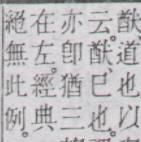 猷道也以
云。猷已也。
亦卽猶三
在左。經典
絕無此例。